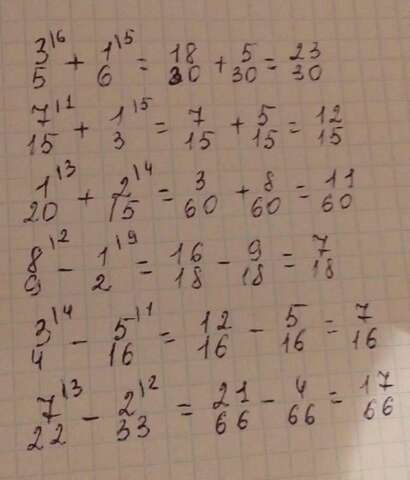 3\6/5 + 1\5/6 = 18/30 + 5/30 = 23/30
7\1/15 + 1\5/3 = 7/15 + 5/15 = 12/15
1\3/20 + 2\4/15 = 3/60 + 8/60 = 11/60
8\2/9 - 1\9/2 = 16/18 - 9/18 = 7/18
3\4/4 - 5\1/16 = 12/16 - 5/16 = 7/16
7\3/22 - 2\2/33 = 21/66 - 4/66 = 17/66